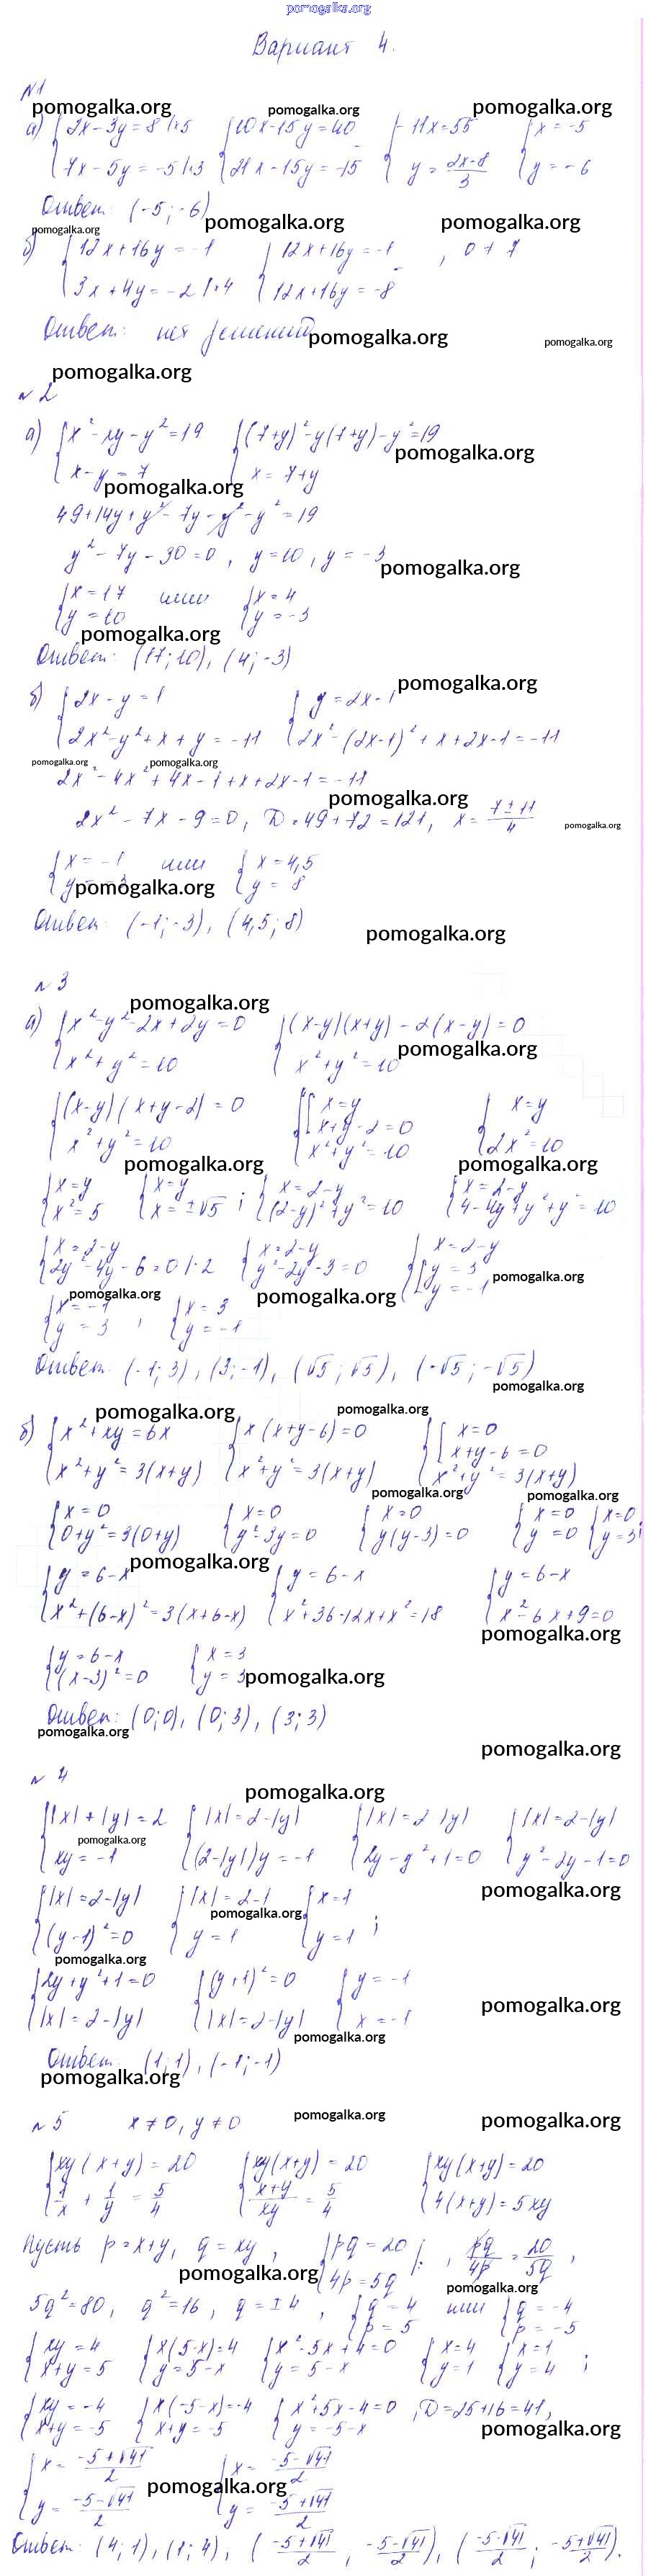 pomogalka.org
Вариант 4.
№1
pomogalka.org pomogalka.org pomogalka.org
а) { 2x-3y=8 |·5 { 10x-15y=40 { -11x=55 { x=-5
7x-5y=-5 |·3 21x-15y=-15 y=(2x-8)/3 y=-6
Ответ: (-5;-6)
pomogalka.org pomogalka.org pomogalka.org
б) { 12x+16y=-1 { 12x+16y=-1 , 0≠7
3x+4y=-2 |·4 12x+16y=-8
Ответ: нет решений
pomogalka.org pomogalka.org
pomogalka.org
№2
а) { x²-xy-y²=19 { (7+y)²-y(7+y)-y²=19
pomogalka.org
x-y=7 x=7+y
pomogalka.org
49+14y+y²-7y-y²-y²=19
y²-7y-30=0, y=10, y=-3
pomogalka.org
{ x=17 или { x=4
y=10 y=-3
pomogalka.org
Ответ: (17;10), (4;-3)
pomogalka.org
б) { 2x-y=1 { y=2x-1
2x²-y²+x+y=-11 2x²-(2x-1)²+x+2x-1=-11
pomogalka.org pomogalka.org
2x²-4x²+4x-1+x+2x-1=-11
pomogalka.org
2x²-7x-9=0, D=49+72=121, x=(7±11)/4
pomogalka.org
{ x=-1 или { x=4,5
y=-3 y=8
pomogalka.org
Ответ: (-1;-3), (4,5;8)
pomogalka.org
№3
pomogalka.org
а) { x²-y²-2x+2y=0 { (x-y)(x+y)-2(x-y)=0
pomogalka.org
x²+y²=10 x²+y²=10
{ (x-y)(x+y-2)=0 { [ x=y { x=y
x+y-2=0
x²+y²=10 x²+y²=10 2x²=10
pomogalka.org pomogalka.org
{ x=y { x=y ; { x=2-y { x=2-y
x²=5 x=±√5 (2-y)²+y²=10 4-4y+y²+y²=10
{ x=2-y { x=2-y { x=2-y
2y²-4y-6=0 |:2 y²-2y-3=0 [ y=3
y=-1
pomogalka.org pomogalka.org pomogalka.org
{ x=-1 , { x=3
y=3 y=-1
Ответ: (-1;3), (3;-1), (√5;√5), (-√5;-√5)
pomogalka.org
pomogalka.org pomogalka.org
б) { x²+xy=6x { x(x+y-6)=0 { [ x=0
x+y-6=0
x²+y²=3(x+y) x²+y²=3(x+y) x²+y²=3(x+y)
pomogalka.org pomogalka.org
{ x=0 { x=0 { x=0 { x=0 { x=0
0+y²=3(0+y) y²-3y=0 y(y-3)=0 y=0 y=3;
pomogalka.org
{ y=6-x { y=6-x { y=6-x
x²+(6-x)²=3(x+6-x) x²+36-12x+x²=18 x²-6x+9=0
pomogalka.org
{ y=6-x { x=3
(x-3)²=0 y=3
pomogalka.org
Ответ: (0;0), (0;3), (3;3)
pomogalka.org
pomogalka.org
№4
pomogalka.org
{ |x|+|y|=2 { |x|=2-|y| { |x|=2-|y| { |x|=2-|y|
pomogalka.org
xy=-1 (2-|y|)y=-1 2y-y²+1=0 y²-2y-1=0
pomogalka.org
{ |x|=2-|y| { |x|=2-1 { x=1 ;
pomogalka.org
(y-1)²=0 y=1 y=1
pomogalka.org
{ 2y+y²+1=0 { (y+1)²=0 { y=-1
pomogalka.org
|x|=2-|y| |x|=2-|y| x=-1
pomogalka.org
Ответ: (1;1), (-1;-1)
pomogalka.org
№5 x≠0, y≠0
pomogalka.org pomogalka.org
{ xy(x+y)=20 { xy(x+y)=20 { xy(x+y)=20
1/x + 1/y = 5/4 (x+y)/xy = 5/4 4(x+y)=5xy
Пусть p=x+y, q=xy, { pq=20 |: , pq/4p = 20/5q ,
4p=5q
pomogalka.org pomogalka.org
5q²=80, q²=16, q=±4, { q=4 или { q=-4
p=5 p=-5
{ xy=4 { x(5-x)=4 { x²-5x+4=0 { x=4 { x=1 ;
x+y=5 y=5-x y=5-x y=1 y=4
{ xy=-4 { x(-5-x)=-4 { x²+5x-4=0 , D=25+16=41,
x+y=-5 x+y=-5 y=-5-x
pomogalka.org
{ x=(-5+√41)/2 { x=(-5-√41)/2
pomogalka.org
y=(-5-√41)/2 y=(-5+√41)/2
Ответ: (4;1), (1;4), ((-5+√41)/2 ; (-5-√41)/2), ((-5-√41)/2 ; (-5+√41)/2).